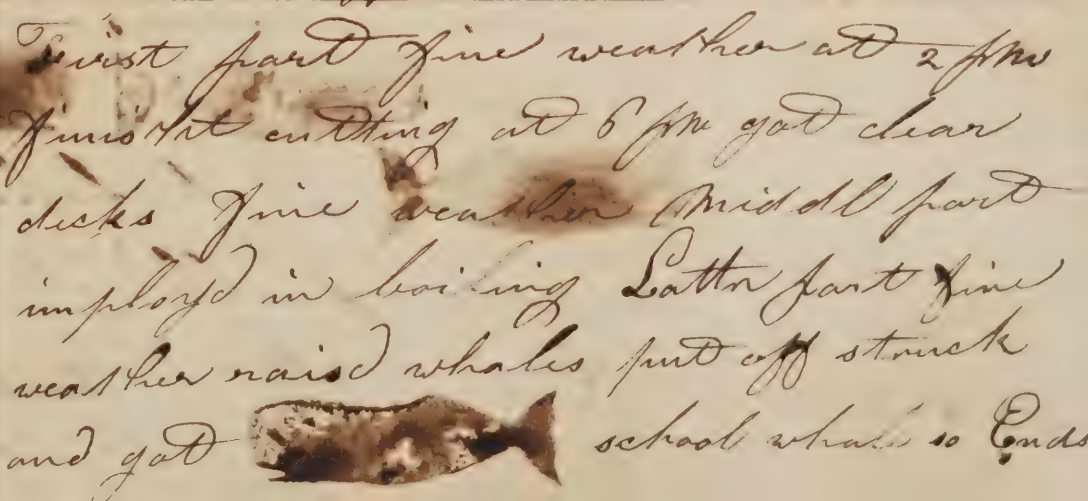 First part fine weather at 2 pm
finisht cutting at 6 pm got clear
decks fine weather Middl part
imployd in boiling Lattr part fine
weather raisd whales put off struck
and got school whale so Ends